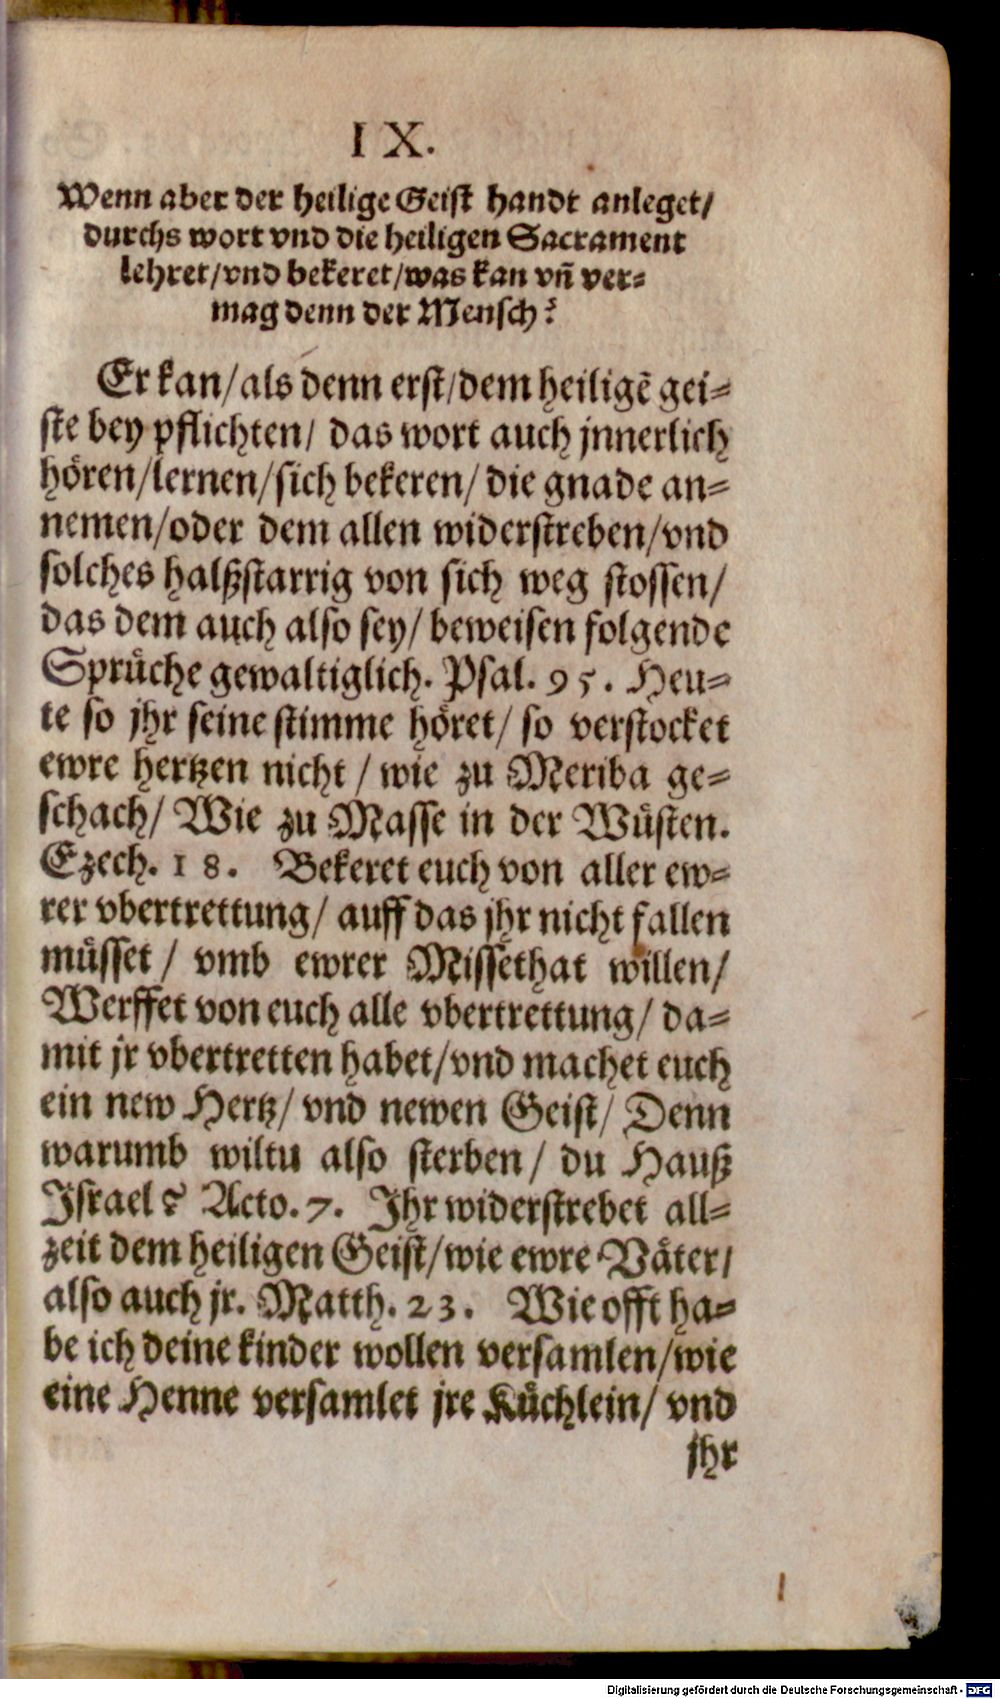 IX.
Wenn aber der heilige Geist handt anleget/
durchs wort vnd die heiligen Sacrament
lehret/vnd bekeret/was kan vñ ver-
mag denn der Mensch?
Er kan/als denn erst/dem heiligē gei-
ste bey pflichten/ das wort auch jnnerlich
hören/lernen/sich bekeren/ die gnade an-
nemen/oder dem allen widerstreben/vnd
solches halßstarrig von sich weg stossen/
das dem auch also sey/ beweisen folgende
Sprüche gewaltiglich. Psal. 95. Heu-
te so jhr seine stimme höret/ so verstocket
ewre hertzen nicht / wie zu Meriba ge-
schach/ Wie zu Masse in der Wüsten.
Ezech. 18. Bekeret euch von aller ew-
rer vbertrettung/ auff das jhr nicht fallen
müsset / vmb ewrer Missethat willen/
Werffet von euch alle vbertrettung/ da-
mit jr vbertretten habet/vnd machet euch
ein new Hertz/ vnd newen Geist/ Denn
warumb wiltu also sterben/ du Hauß
Israel? Acto. 7. Jhr widerstrebet all-
zeit dem heiligen Geist/wie ewre Väter/
also auch jr. Matth. 23. Wie offt ha-
be ich deine kinder wollen versamlen/wie
eine Henne versamlet jre Küchlein/ vnd
jhr
Digitalisierung gefördert durch die Deutsche Forschungsgemeinschaft - DFG